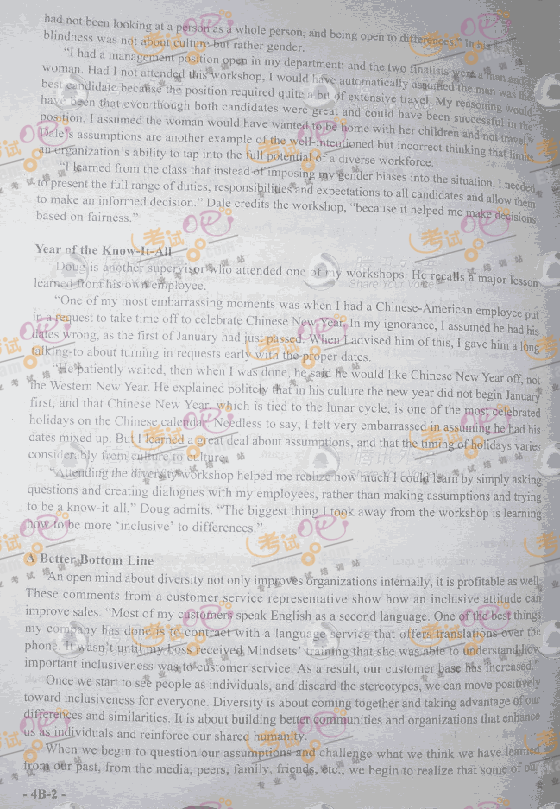 had not been looking at a person as a whole person, and being open to differences." In his
blindness was not about culture but rather gender.
"I had a management position open in my department; and the two finalists were a man and
woman. Had I not attended this workshop, I would have automatically assumed the man was the
best candidate because the position required quite a bit of extensive travel. My reasoning would
have been that even though both candidates were great and could have been successful in the
position, I assumed the woman would have wanted to be home with her children and not travel."
Dale's assumptions are another example of the well-intentioned but incorrect thinking that limits
an organization's ability to tap into the full potential of a diverse workforce.
"I learned from the class that instead of imposing my gender biases into the situation, I needed
to present the full range of duties, responsibilities and expectations to all candidates and allow them
to make an informed decision." Dale credits the workshop, "because it helped me make decisions
based on fairness."
Year of the Know-It-All
Doug is another supervisor who attended one of my workshops. He recalls a major lesson
learned from his own employee.
"One of my most embarrassing moments was when I had a Chinese-American employee put
in a request to take time off to celebrate Chinese New Year. In my ignorance, I assumed he had his
dates wrong, as the first of January had just passed. When I advised him of this, I gave him a long
talking-to about turning in requests early with the proper dates.
"He patiently waited, then when I was done, he said he would like Chinese New Year off, not
the Western New Year. He explained politely that in his culture the new year did not begin January
first, and that Chinese New Year, which is tied to the lunar cycle, is one of the most celebrated
holidays on the Chinese calendar. Needless to say, I felt very embarrassed in assuming he had his
dates mixed up. But I learned a great deal about assumptions, and that the timing of holidays varies
considerably from culture to culture.
"Attending the diversity workshop helped me realize how much I could learn by simply asking
questions and creating dialogues with my employees, rather than making assumptions and trying
to be a know-it-all," Doug admits. "The biggest thing I took away from the workshop is learning
how to be more 'inclusive' to differences."
A Better Bottom Line
An open mind about diversity not only improves organizations internally, it is profitable as well.
These comments from a customer service representative show how an inclusive attitude can
improve sales. "Most of my customers speak English as a second language. One of the best things
my company has done is to contract with a language service that offers translations over the
phone. It wasn't until my boss received Mindsets' training that she was able to understand how
important inclusiveness was to customer service. As a result, our customer base has increased."
Once we start to see people as individuals, and discard the stereotypes, we can move positively
toward inclusiveness for everyone. Diversity is about coming together and taking advantage of our
differences and similarities. It is about building better communities and organizations that enhance
us as individuals and reinforce our shared humanity.
When we begin to question our assumptions and challenge what we think we have learned
from our past, from the media, peers, family, friends, etc., we begin to realize that some of our
- 4B-2 -